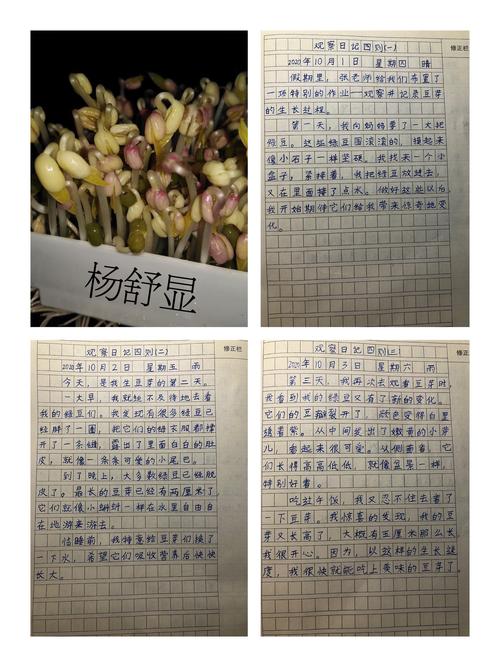 杨舒显
观察日记四则(一)
修正栏
2020年10月1日 星期四 晴
假期里,张老师给我们布置了
一项特别的作业——观察并记录豆芽
的生长过程。
第一天,我向妈妈要了一大把
绿豆。这些绿豆圆滚滚的,摸起来
像小石子一样坚硬。我找来一个小
盒子,紧接着,我把绿豆放进去,
又在里面撑了点水。做好这些以后,
我开始期待它们给我带来惊奇地变
化。
观察日记四则(二)
修正栏
2020年10月2日 星期五 雨
今天,是我生豆芽的第二天。
一大早,我就迫不及待地去看
我的绿豆们。我发现有很多绿豆已
经胖了一圈,把它们的绿衣服都撑
开了一条缝,露出了里面白白的肚
皮,就像一条条可爱的小尾巴。
到了晚上,大多数绿豆已经脱
皮了。最长的豆芽已经有两厘米了,
它们就像小蝌蚪一样在水里自由自
在地游来游去。
临睡前,我特意给豆芽们换了
一下水,希望它们吸收营养后快快
长大。
观察日记四则(三)
修正栏
2020年10月3日 星期六 雨
第三天,我再次去观看豆芽时,
我看到我的绿豆又有了新的变化。
它们的豆瓣裂开了,颜色变得白里
透着紫。从中间发出了嫩黄的小芽
儿,看起来很可爱。从侧面看,它
们长得高高低低,就像盆景一样,
特别好看。
吃过午饭,我又忍不住去看了
一下豆芽。我惊喜的发现,我的豆
芽又长高了,大概有五厘米那么长。
我很开心。因为,以这样的生长速
度,我很快就能吃上美味的豆芽了。